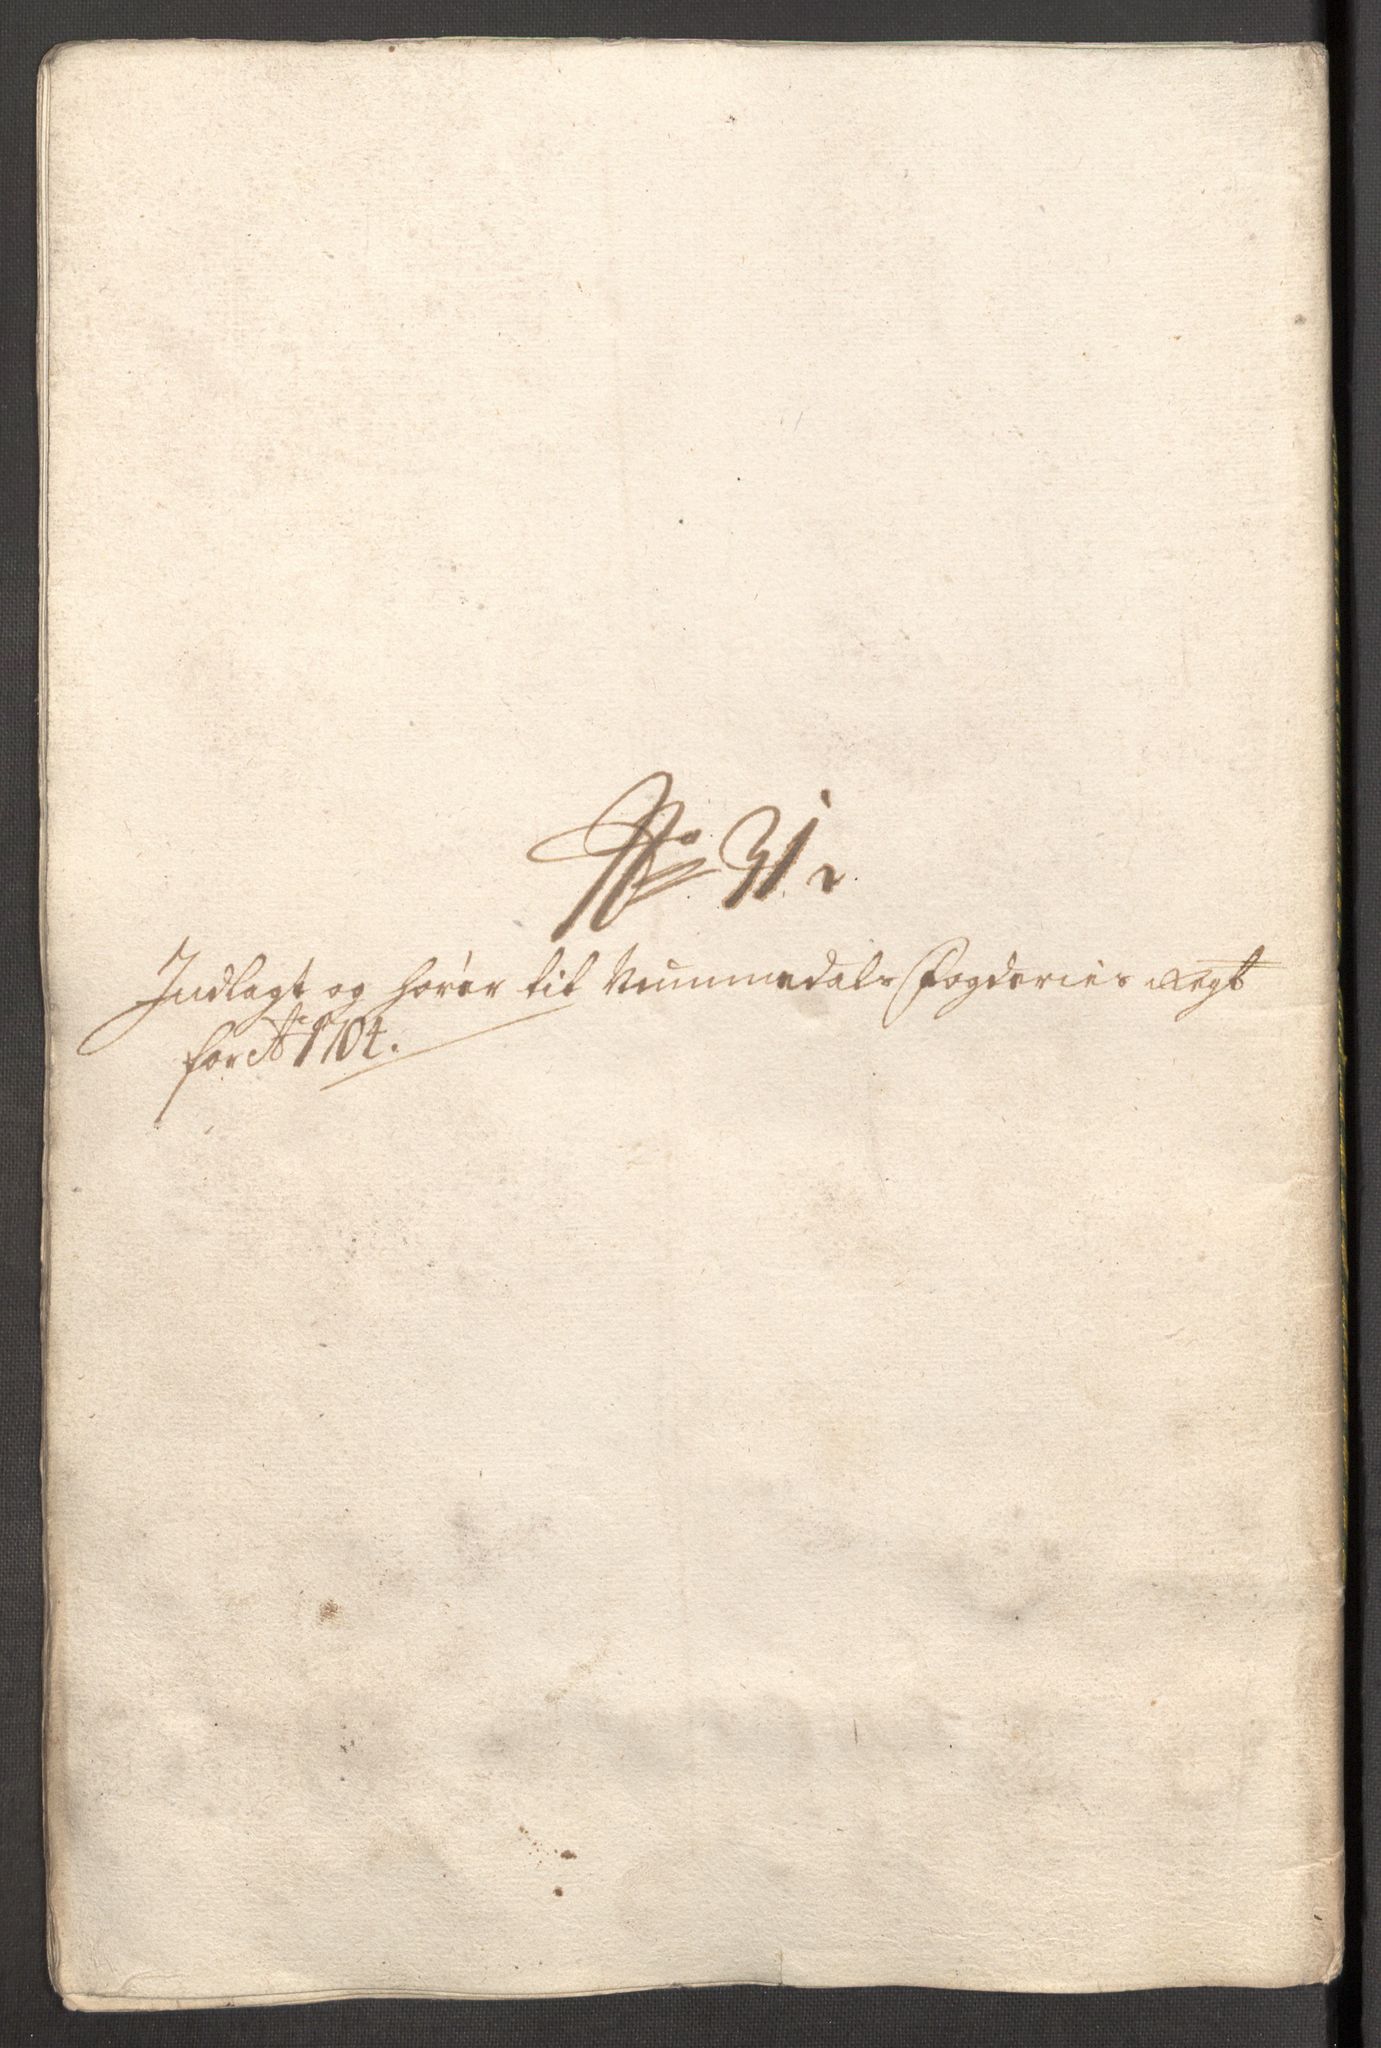 No 31.
Indlagt og hører til Nummedals Fogderies Regt
for Ao 1704.